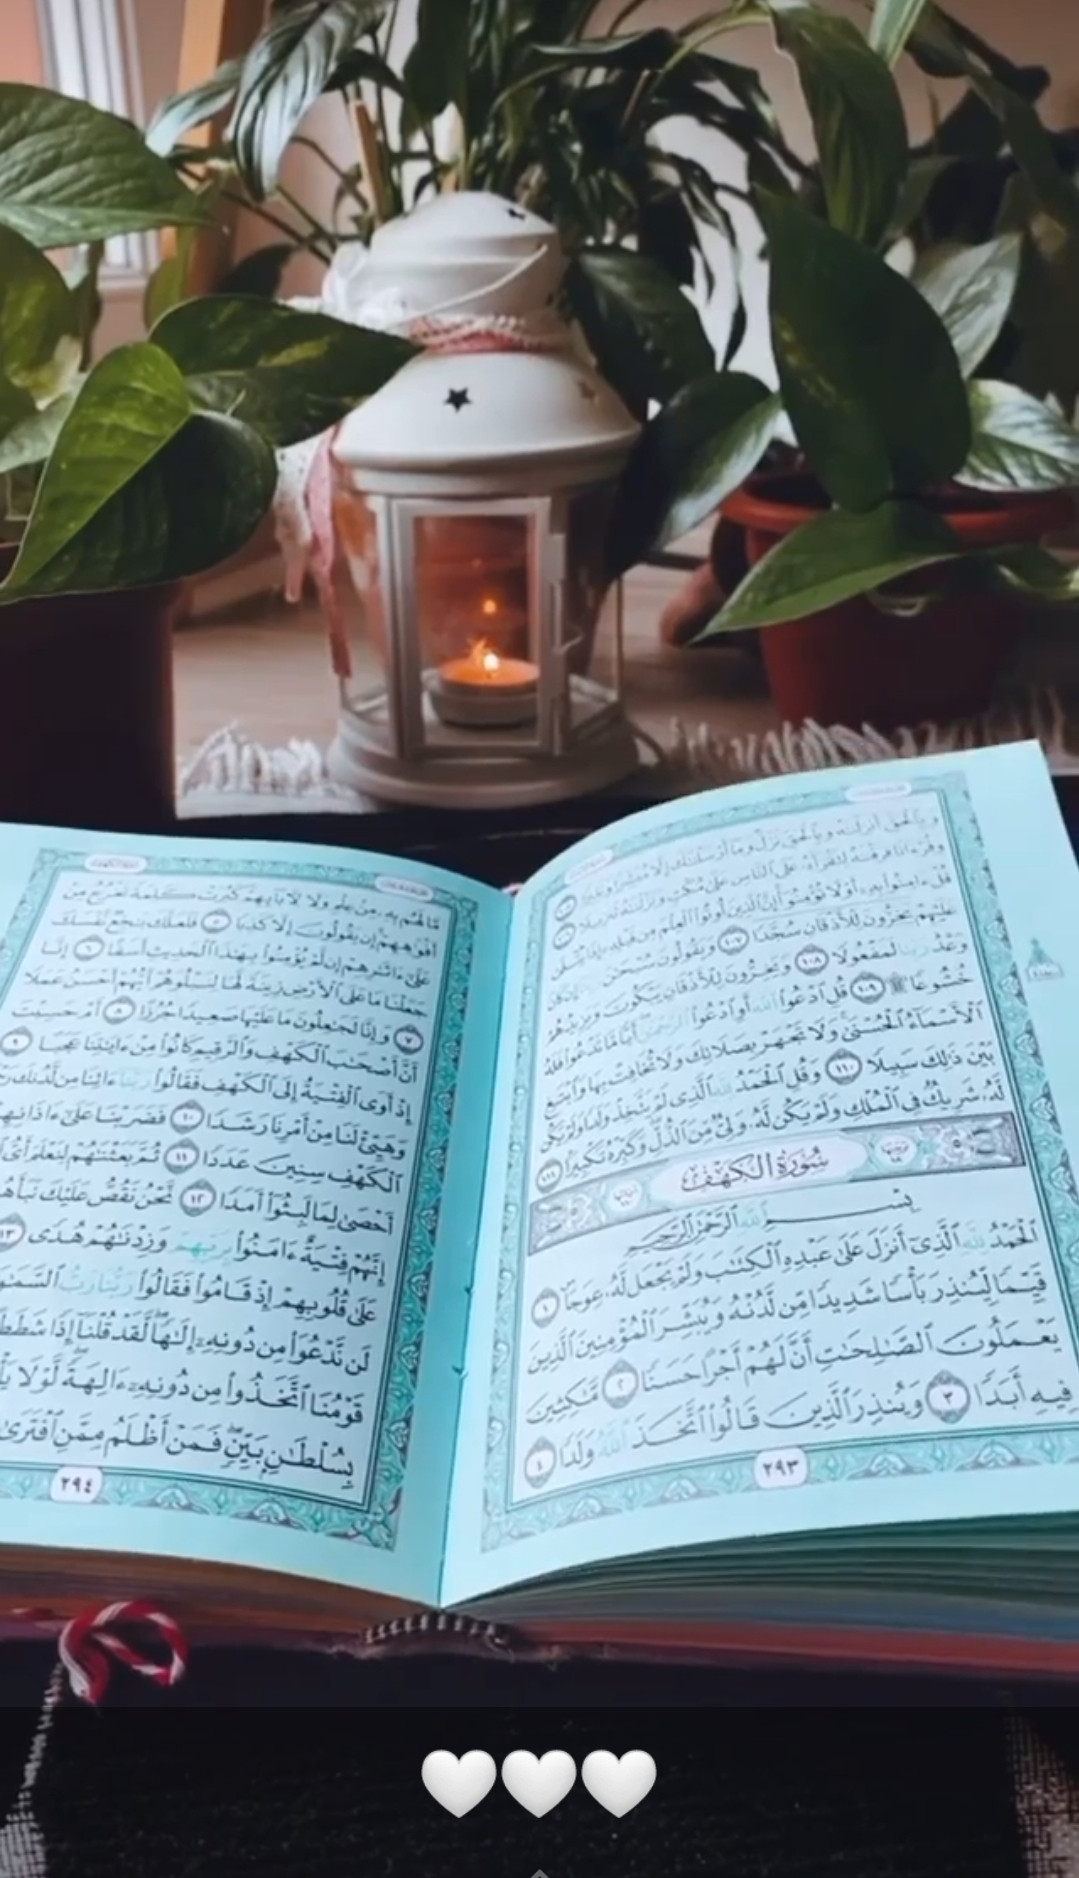 وَبِٱلْحَقِّ أَنزَلْنَٰهُ وَبِٱلْحَقِّ نَزَلَ وَمَآ أَرْسَلْنَٰكَ إِلَّا مُبَشِّرًا وَنَذِيرًا ١٠٥
وَقُرْءَانًا فَرَقْنَٰهُ لِتَقْرَأَهُۥ عَلَى ٱلنَّاسِ عَلَىٰ مُكْثٍ وَنَزَّلْنَٰهُ تَنزِيلًا ١٠٦
قُلْ ءَامِنُوا۟ بِهِۦٓ أَوْ لَا تُؤْمِنُوٓا۟ إِنَّ ٱلَّذِينَ أُوتُوا۟ ٱلْعِلْمَ مِن قَبْلِهِۦٓ إِذَا يُتْلَىٰ
عَلَيْهِمْ يَخِرُّونَ لِلْأَذْقَانِ سُجَّدًا ١٠٧ وَيَقُولُونَ سُبْحَٰنَ
وَعْدُ رَبِّنَا لَمَفْعُولًا ١٠٨ وَيَخِرُّونَ لِلْأَذْقَانِ يَبْكُونَ وَيَزِيدُهُمْ
خُشُوعًا ۩ ١٠٩ قُلِ ٱدْعُوا۟ ٱللَّهَ أَوِ ٱدْعُوا۟ ٱلرَّحْمَٰنَ أَيًّا مَّا تَدْعُوا۟ فَلَهُ
ٱلْأَسْمَآءُ ٱلْحُسْنَىٰ وَلَا تَجْهَرْ بِصَلَاتِكَ وَلَا تُخَافِتْ بِهَا وَٱبْتَغِ
بَيْنَ ذَٰلِكَ سَبِيلًا ١١٠ وَقُلِ ٱلْحَمْدُ لِلَّهِ ٱلَّذِى لَمْ يَتَّخِذْ وَلَدًا وَلَمْ يَكُن
لَّهُۥ شَرِيكٌ فِى ٱلْمُلْكِ وَلَمْ يَكُن لَّهُۥ وَلِىٌّ مِّنَ ٱلذُّلِّ وَكَبِّرْهُ تَكْبِيرًۢا ١١١
سُورَةُ الْكَهْفِ
بِسْمِ ٱللَّهِ ٱلرَّحْمَٰنِ ٱلرَّحِيمِ
ٱلْحَمْدُ لِلَّهِ ٱلَّذِىٓ أَنزَلَ عَلَىٰ عَبْدِهِ ٱلْكِتَٰبَ وَلَمْ يَجْعَل لَّهُۥ عِوَجَا ١
قَيِّمًا لِّيُنذِرَ بَأْسًا شَدِيدًا مِّن لَّدُنْهُ وَيُبَشِّرَ ٱلْمُؤْمِنِينَ ٱلَّذِينَ
يَعْمَلُونَ ٱلصَّٰلِحَٰتِ أَنَّ لَهُمْ أَجْرًا حَسَنًا ٢ مَّٰكِثِينَ
فِيهِ أَبَدًا ٣ وَيُنذِرَ ٱلَّذِينَ قَالُوا۟ ٱتَّخَذَ ٱللَّهُ وَلَدًا ٤
٢٩٣
مَّا لَهُم بِهِۦ مِنْ عِلْمٍ وَلَا لِـَٔابَآئِهِمْ كَبُرَتْ كَلِمَةً تَخْرُجُ مِنْ
أَفْوَٰهِهِمْ إِن يَقُولُونَ إِلَّا كَذِبًا ٥ فَلَعَلَّكَ بَٰخِعٌ نَّفْسَكَ
عَلَىٰٓ ءَاثَٰرِهِمْ إِن لَّمْ يُؤْمِنُوا۟ بِهَٰذَا ٱلْحَدِيثِ أَسَفًا ٦ إِنَّا
جَعَلْنَا مَا عَلَى ٱلْأَرْضِ زِينَةً لَّهَا لِنَبْلُوَهُمْ أَيُّهُمْ أَحْسَنُ عَمَلًا
٧ وَإِنَّا لَجَٰعِلُونَ مَا عَلَيْهَا صَعِيدًا جُرُزًا ٨ أَمْ حَسِبْتَ
أَنَّ أَصْحَٰبَ ٱلْكَهْفِ وَٱلرَّقِيمِ كَانُوا۟ مِنْ ءَايَٰتِنَا عَجَبًا ٩
إِذْ أَوَى ٱلْفِتْيَةُ إِلَى ٱلْكَهْفِ فَقَالُوا۟ رَبَّنَآ ءَاتِنَا مِن لَّدُنكَ
وَهَيِّئْ لَنَا مِنْ أَمْرِنَا رَشَدًا ١٠ فَضَرَبْنَا عَلَىٰٓ ءَاذَانِهِمْ
ٱلْكَهْفِ سِنِينَ عَدَدًا ١١ ثُمَّ بَعَثْنَٰهُمْ لِنَعْلَمَ أَىُّ
أَحْصَىٰ لِمَا لَبِثُوٓا۟ أَمَدًا ١٢ نَّحْنُ نَقُصُّ عَلَيْكَ نَبَأَهُم
إِنَّهُمْ فِتْيَةٌ ءَامَنُوا۟ بِرَبِّهِمْ وَزِدْنَٰهُمْ هُدًى ١٣
عَلَىٰ قُلُوبِهِمْ إِذْ قَامُوا۟ فَقَالُوا۟ رَبُّنَا رَبُّ ٱلسَّمَٰوَٰتِ
لَن نَّدْعُوَا۟ مِن دُونِهِۦٓ إِلَٰهًا لَّقَدْ قُلْنَآ إِذًا شَطَطًا
قَوْمُنَا ٱتَّخَذُوا۟ مِن دُونِهِۦٓ ءَالِهَةً لَّوْلَا
بِسُلْطَٰنٍۭ بَيِّنٍ فَمَنْ أَظْلَمُ مِمَّنِ ٱفْتَرَىٰ
٢٩٤